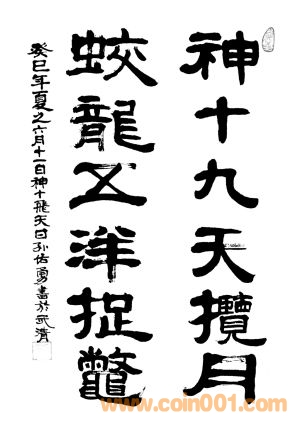 神十九天攬月
蛟龍五洋捉鼈
癸巳年夏之六月十一日神十飛天日孙佑勇書於武清
www.coin001.com